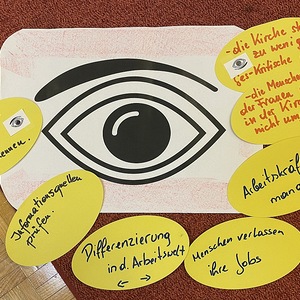 -die Kirche
zu weni
-Kritische
-die Mensche
der Frauen
in der Kir
nicht um
ennen.
Informationsquellen
prüfen
Differenzierung
in d. Arbeitswelt
← →
Menschen verlassen
ihre Jobs
Arbeitskräf
man